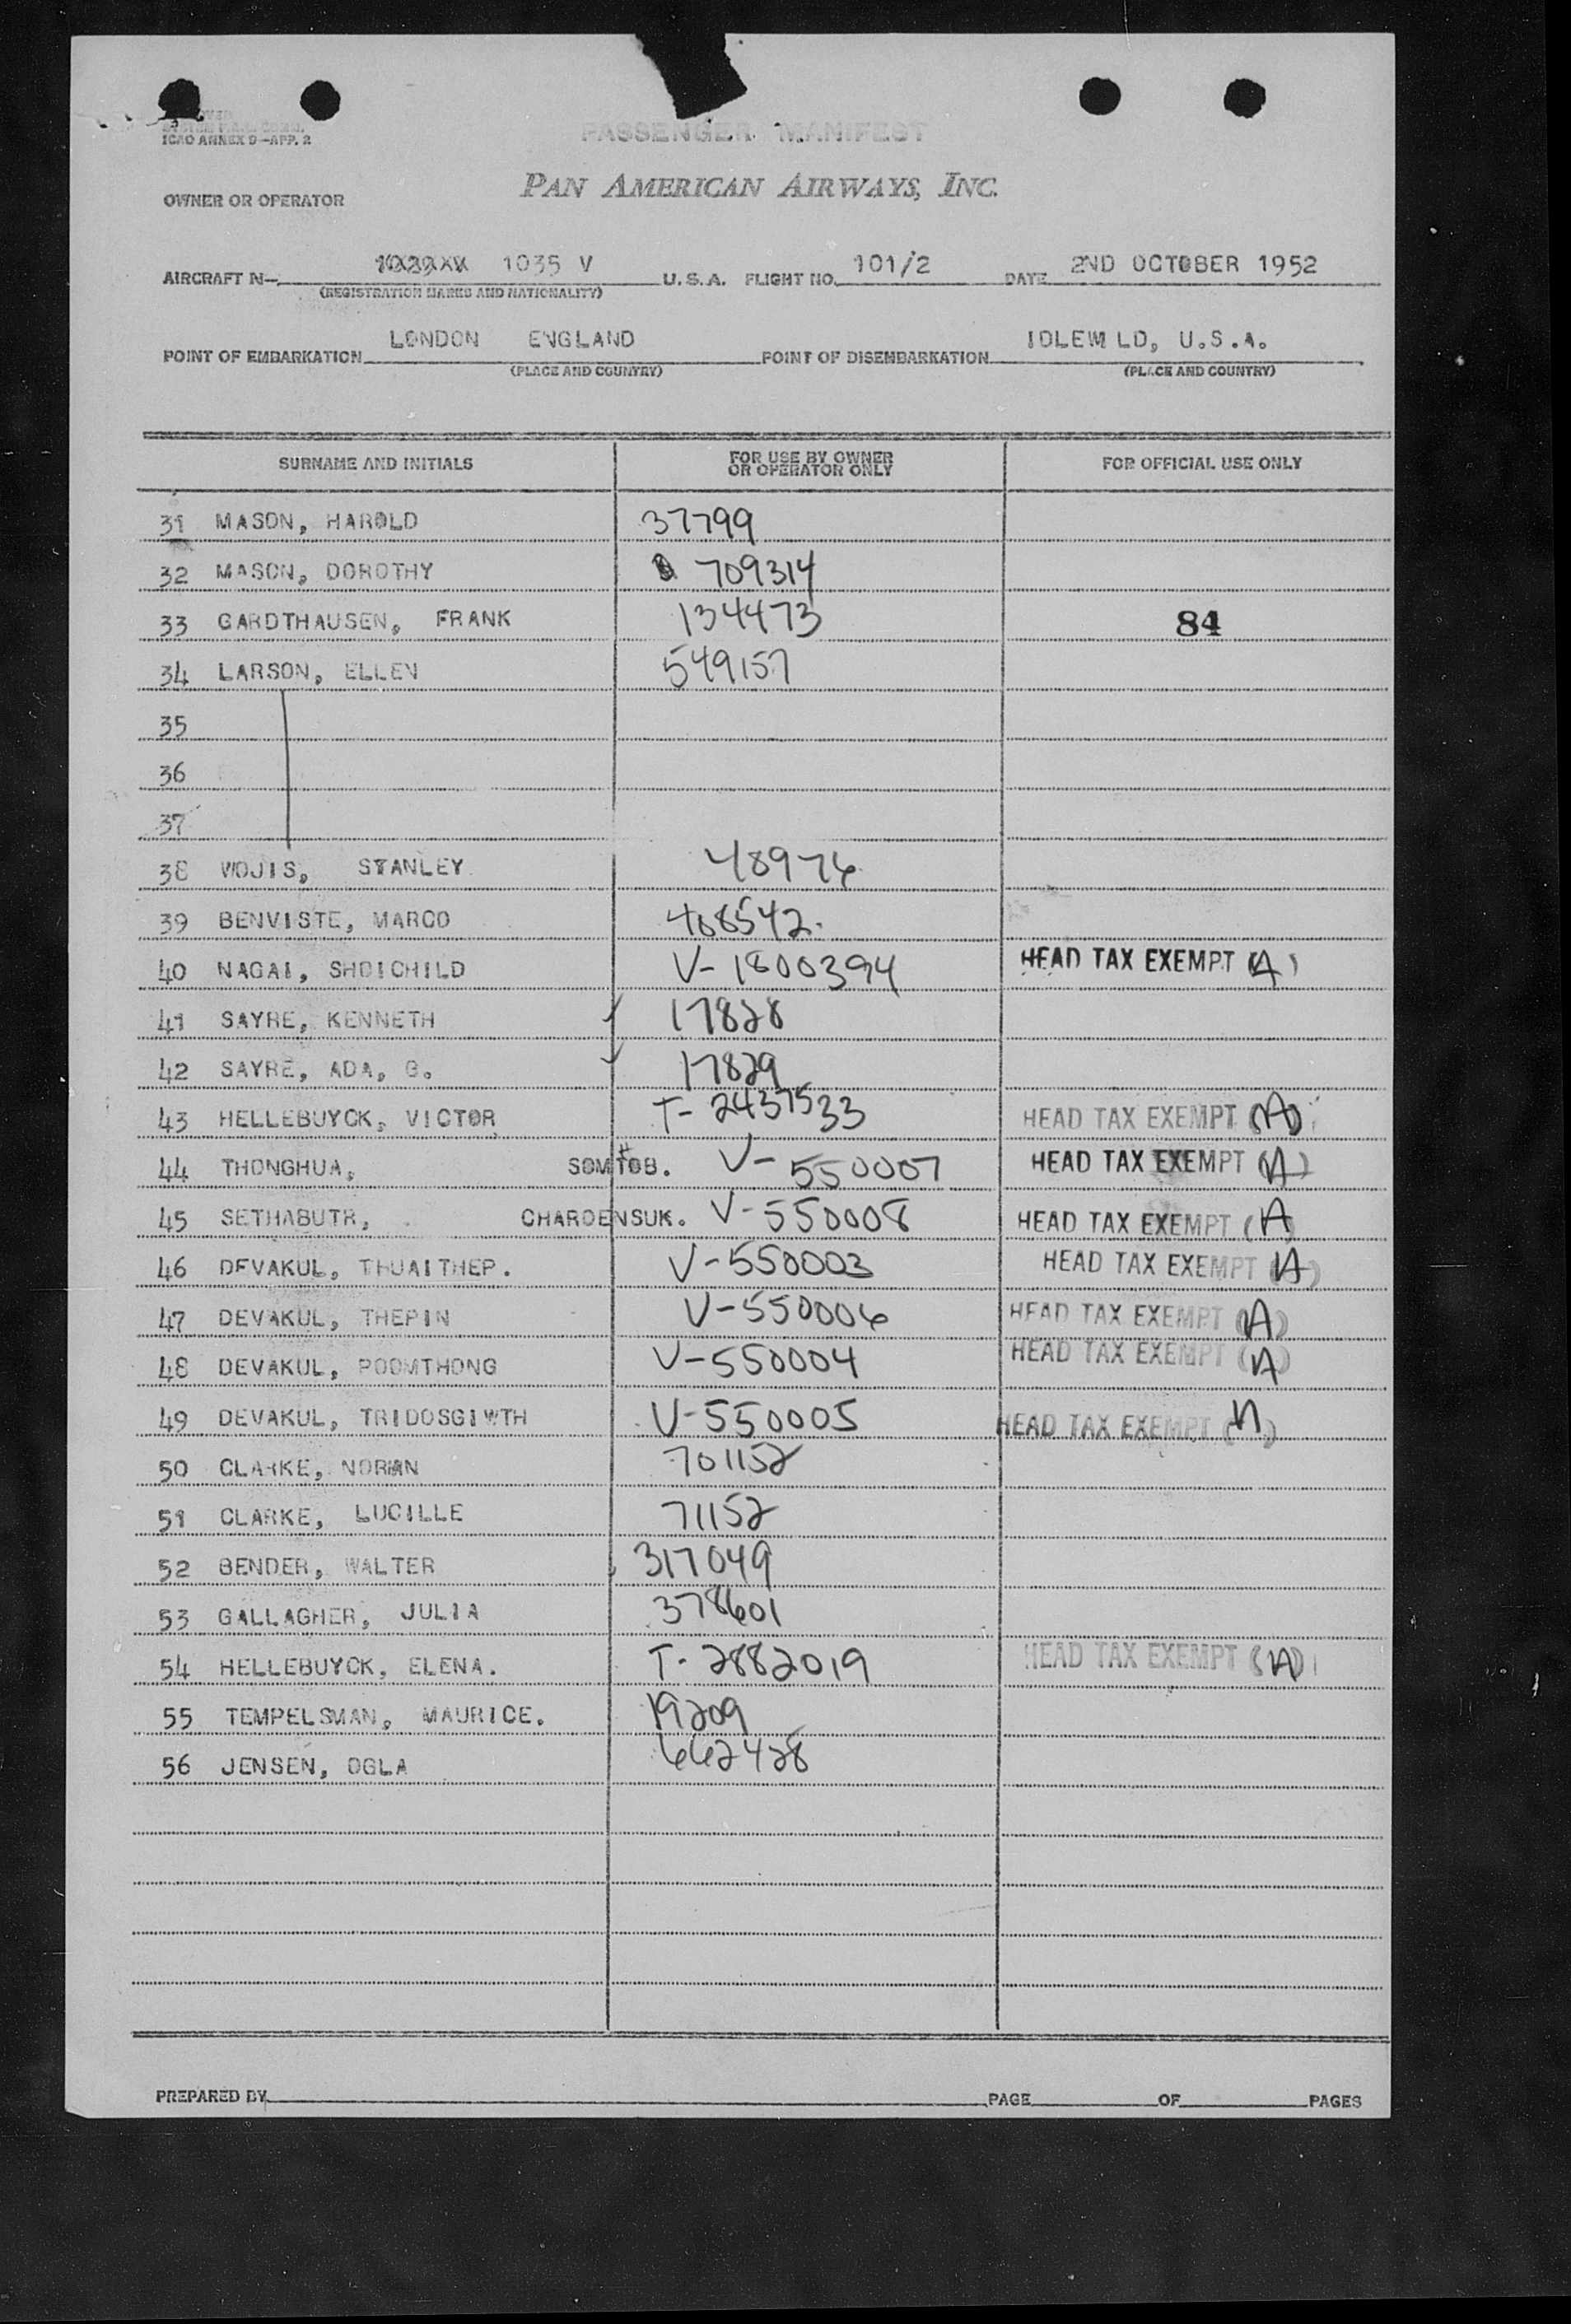 ICAO ANNEX 9—APP. 2
PASSENGER MANIFEST
OWNER OR OPERATOR PAN AMERICAN AIRWAYS, INC.
AIRCRAFT N— 1035 V U.S.A. FLIGHT NO. 101/2 DATE 2ND OCTOBER 1952
(REGISTRATION MARKS AND NATIONALITY)
POINT OF EMBARKATION LONDON ENGLAND POINT OF DISEMBARKATION IDLEW LD, U.S.A.
(PLACE AND COUNTRY) (PLACE AND COUNTRY)
SURNAME AND INITIALS FOR USE BY OWNER OR OPERATOR ONLY FOR OFFICIAL USE ONLY
31 MASON, HAROLD 37799
32 MASON, DOROTHY 709314
33 GARDTHAUSEN, FRANK 134473 84
34 LARSON, ELLEN 549157
35
36
37
38 WOJIS, STANLEY 48976
39 BENVISTE, MARCO 468542.
40 NAGAI, SHOICHILD V-1800394 HEAD TAX EXEMPT (A)
41 SAYRE, KENNETH ✓ 17828
42 SAYRE, ADA, G. ✓ 17829
43 HELLEBUYCK, VICTOR T-2437533 HEAD TAX EXEMPT (A)
44 THONGHUA, SOMTOB. V-550007 HEAD TAX EXEMPT (A)
45 SETHABUTR, CHAROENSUK. V-550008 HEAD TAX EXEMPT (A)
46 DEVAKUL, THUAITHEP. V-550003 HEAD TAX EXEMPT (A)
47 DEVAKUL, THEPIN V-550006 HEAD TAX EXEMPT (A)
48 DEVAKUL, POOMTHONG V-550004 HEAD TAX EXEMPT (A)
49 DEVAKUL, TRIDOSGIWTH V-550005 HEAD TAX EXEMPT (A)
50 CLARKE, NORMAN 701152
51 CLARKE, LUCILLE 71152
52 BENDER, WALTER 317049
53 GALLAGHER, JULIA 378601
54 HELLEBUYCK, ELENA. T-2882019 HEAD TAX EXEMPT (A)
55 TEMPELSMAN, MAURICE. 19209
56 JENSEN, OGLA 662428
PREPARED BY PAGE OF PAGES